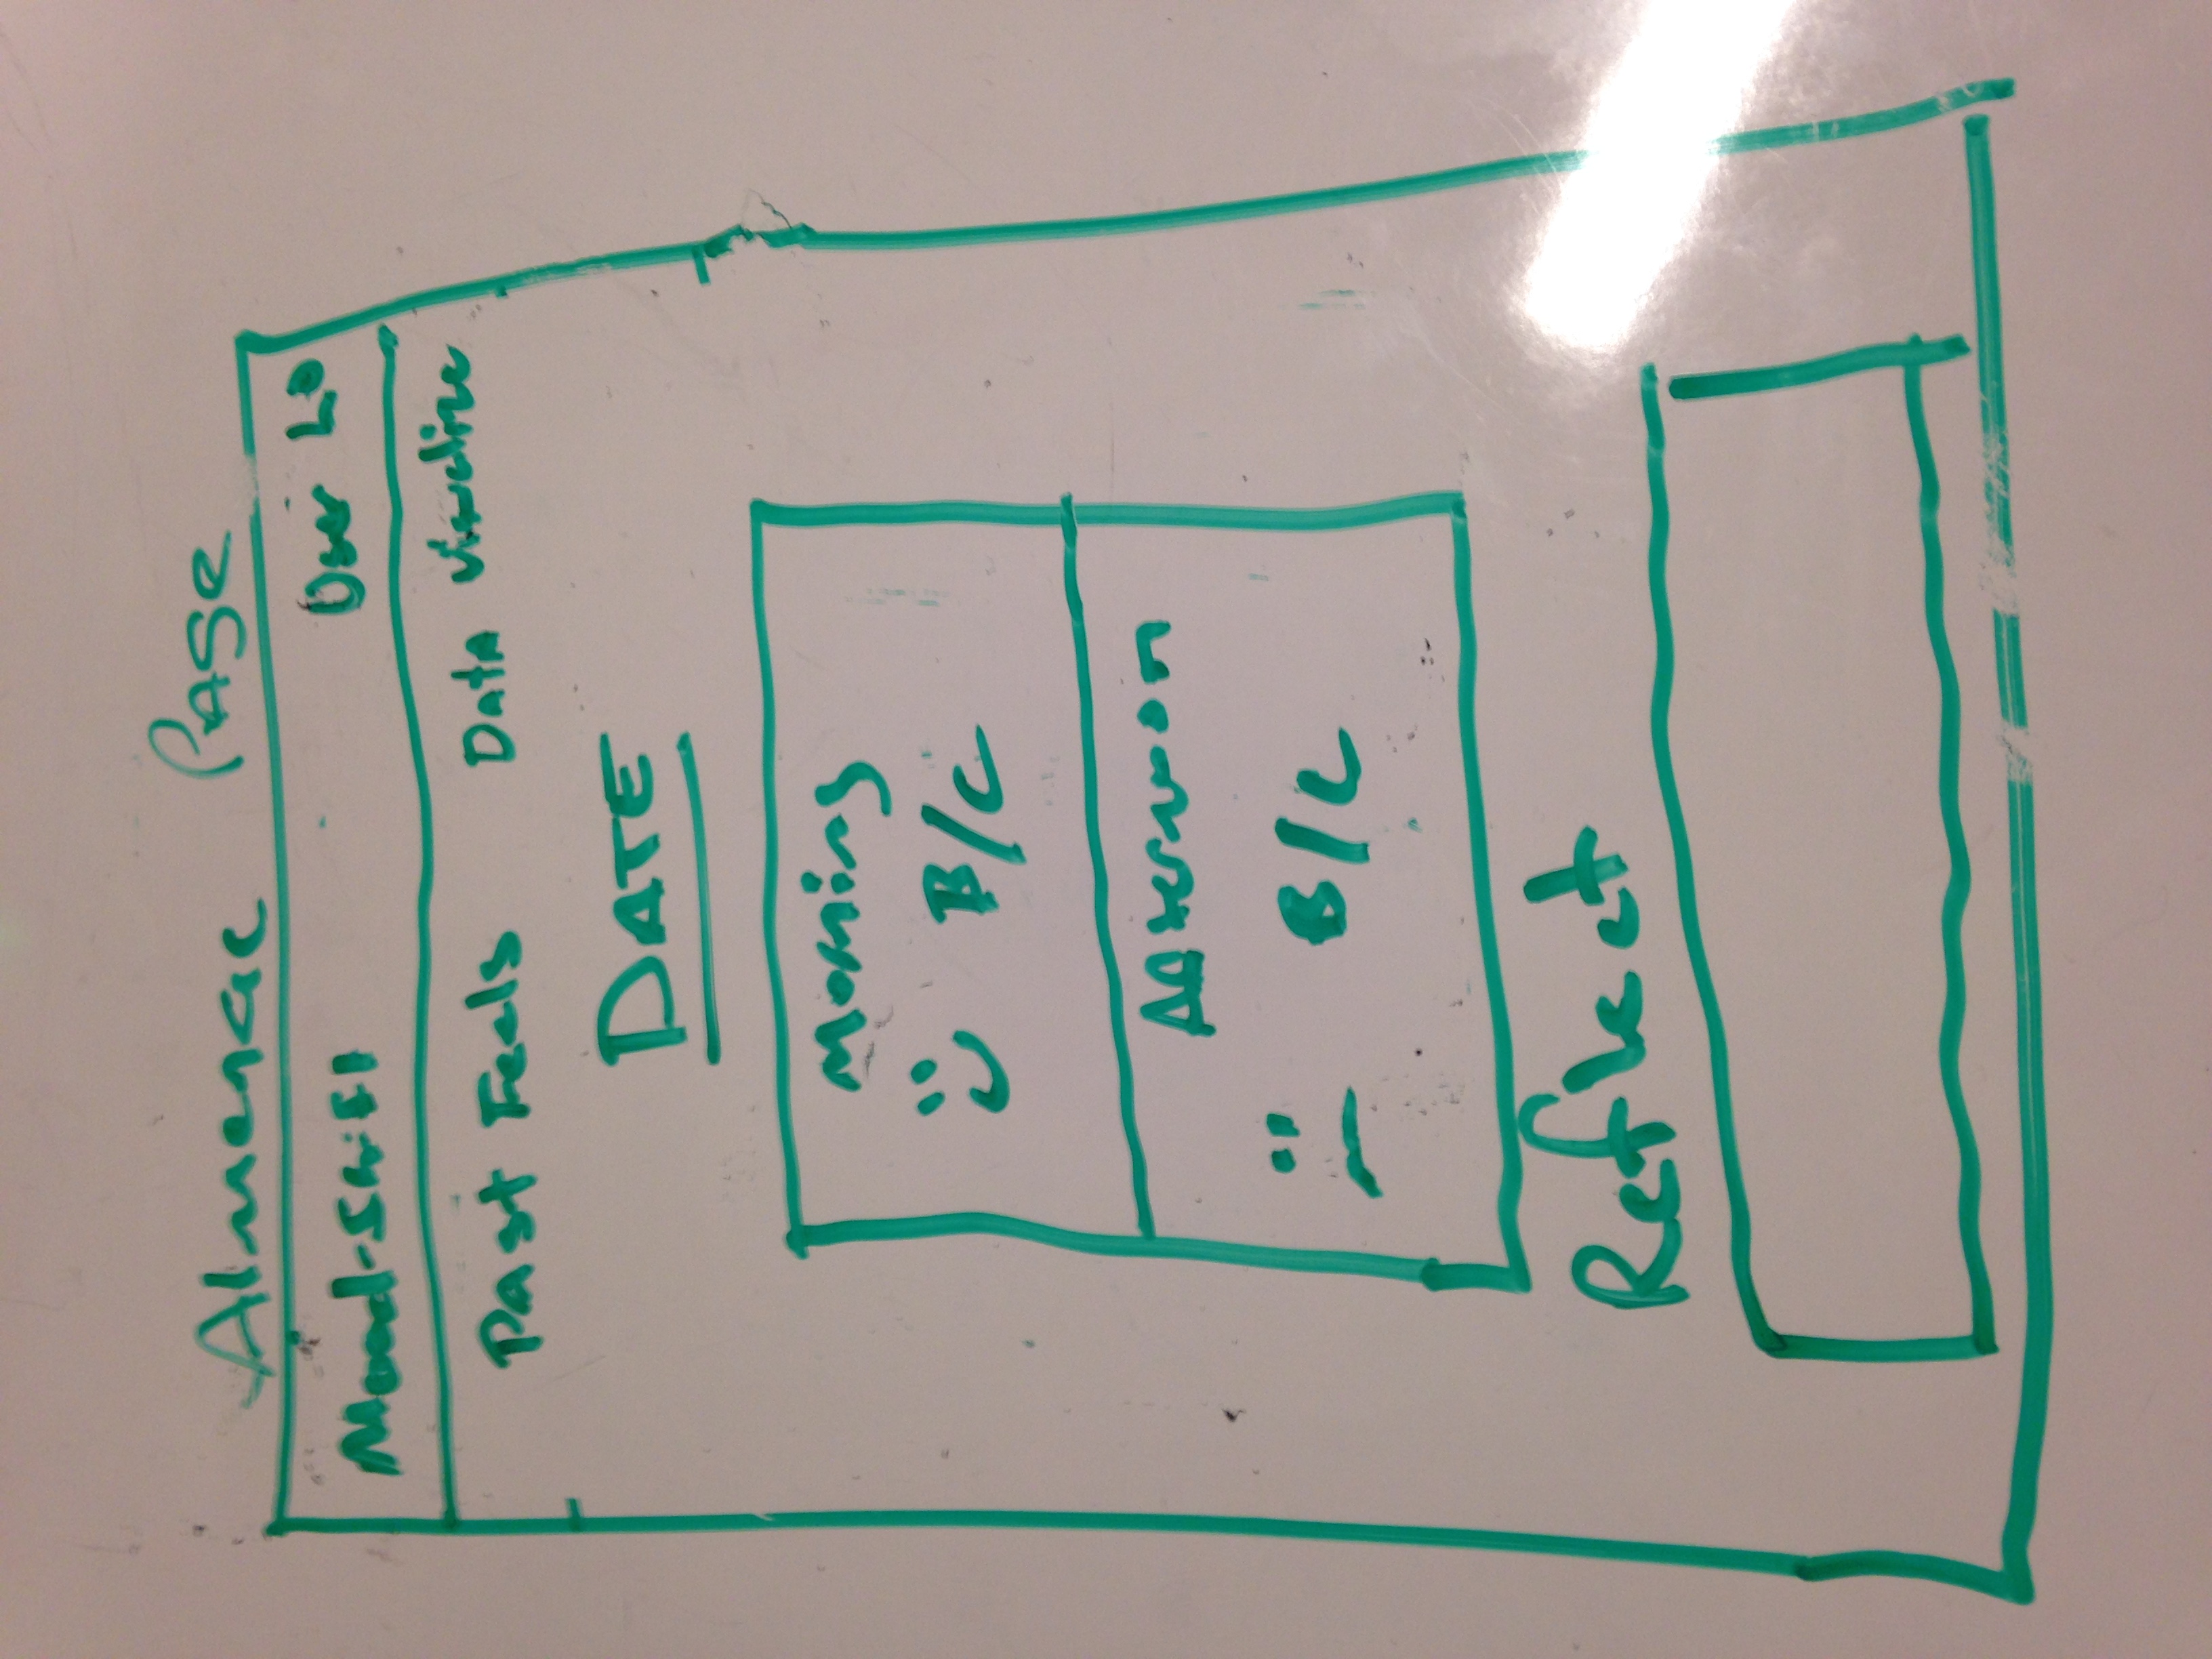 Almenac Page
Mood-Shift User LO
Past Feels Data Visualize
DATE
Morning
B/C
Afternoon
B/C
Reflect